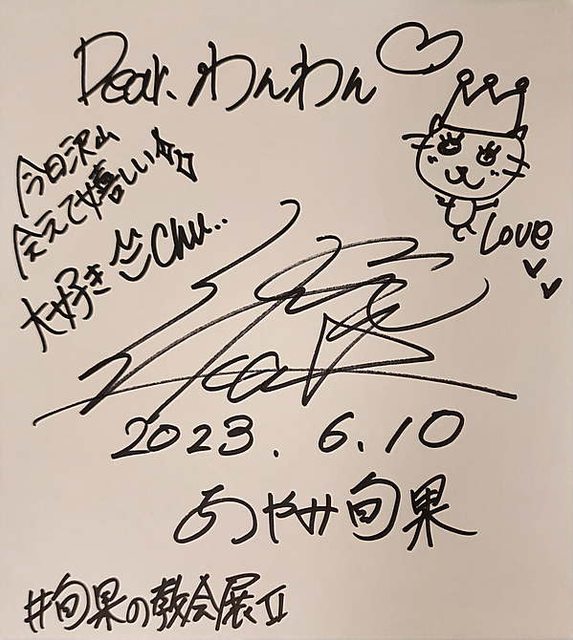 Dear. わんわん♡
今日沢山
会えて嬉しい
大好き Chu..
Love
2023.6.10
あやみ旬果
#旬果の教会展Ⅱ